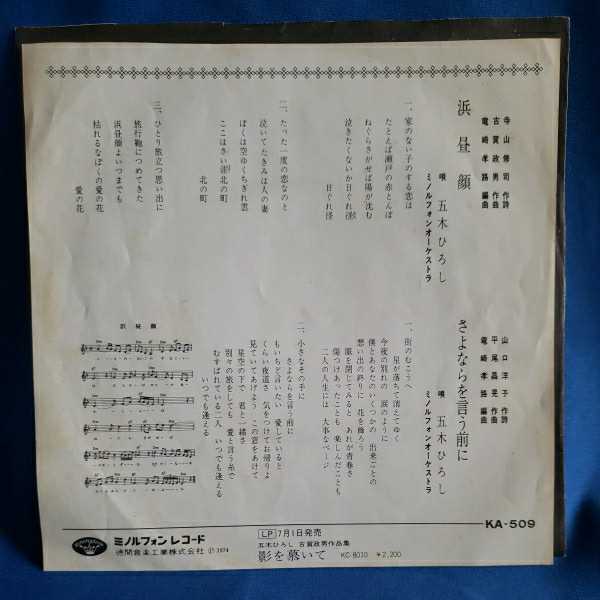 浜昼顔
寺山修司 作詩
古賀政男 作曲
竜崎孝路 編曲
唄 五木ひろし
ミノルフォンオーケストラ
一、家のない子のする恋は
たとえば瀬戸の赤とんぼ
ねぐらさがせば陽が沈む
泣きたくないか日ぐれ径
日ぐれ径
二、たった一度の恋なのと
泣いてたきみは人の妻
ぼくは空ゆくちぎれ雲
ここはさい涯北の町
北の町
三、ひとり旅立つ思い出に
旅行鞄につめてきた
浜昼顔よいつまでも
枯れるなぼくの愛の花
愛の花
さよならを言う前に
山口洋子 作詩
平尾昌晃 作曲
竜崎孝路 編曲
唄 五木ひろし
ミノルフォンオーケストラ
一、街のむこうへ
星が落ちて消えてゆく
今夜の別れの 涙のように
僕とあなたのいくつかの 出来ごとの
思い出の終りに 花を飾ろう
眼を閉じてみると あれが青春さ
傷つけあったことも 楽しんだことも
二人の人生には 大事なページ
二、小さなその手に
さよならを言う前に
もいちど言いたい 愛していると
くらい夜道さ 気をつけてお帰りよ
見ていてあげよう この窓をあけて
星空の下で 君と一緒さ
別々の旅をしても 愛と言う糸で
むすばれている二人 いつでも逢える
いつでも逢える
浜昼顔
KA-509
ミノルフォン レコード
徳間音楽工業株式会社 Ⓟ1974
LP 7月1日発売
五木ひろし 古賀政男作品集
影を慕いて KC-8010 ¥2,200